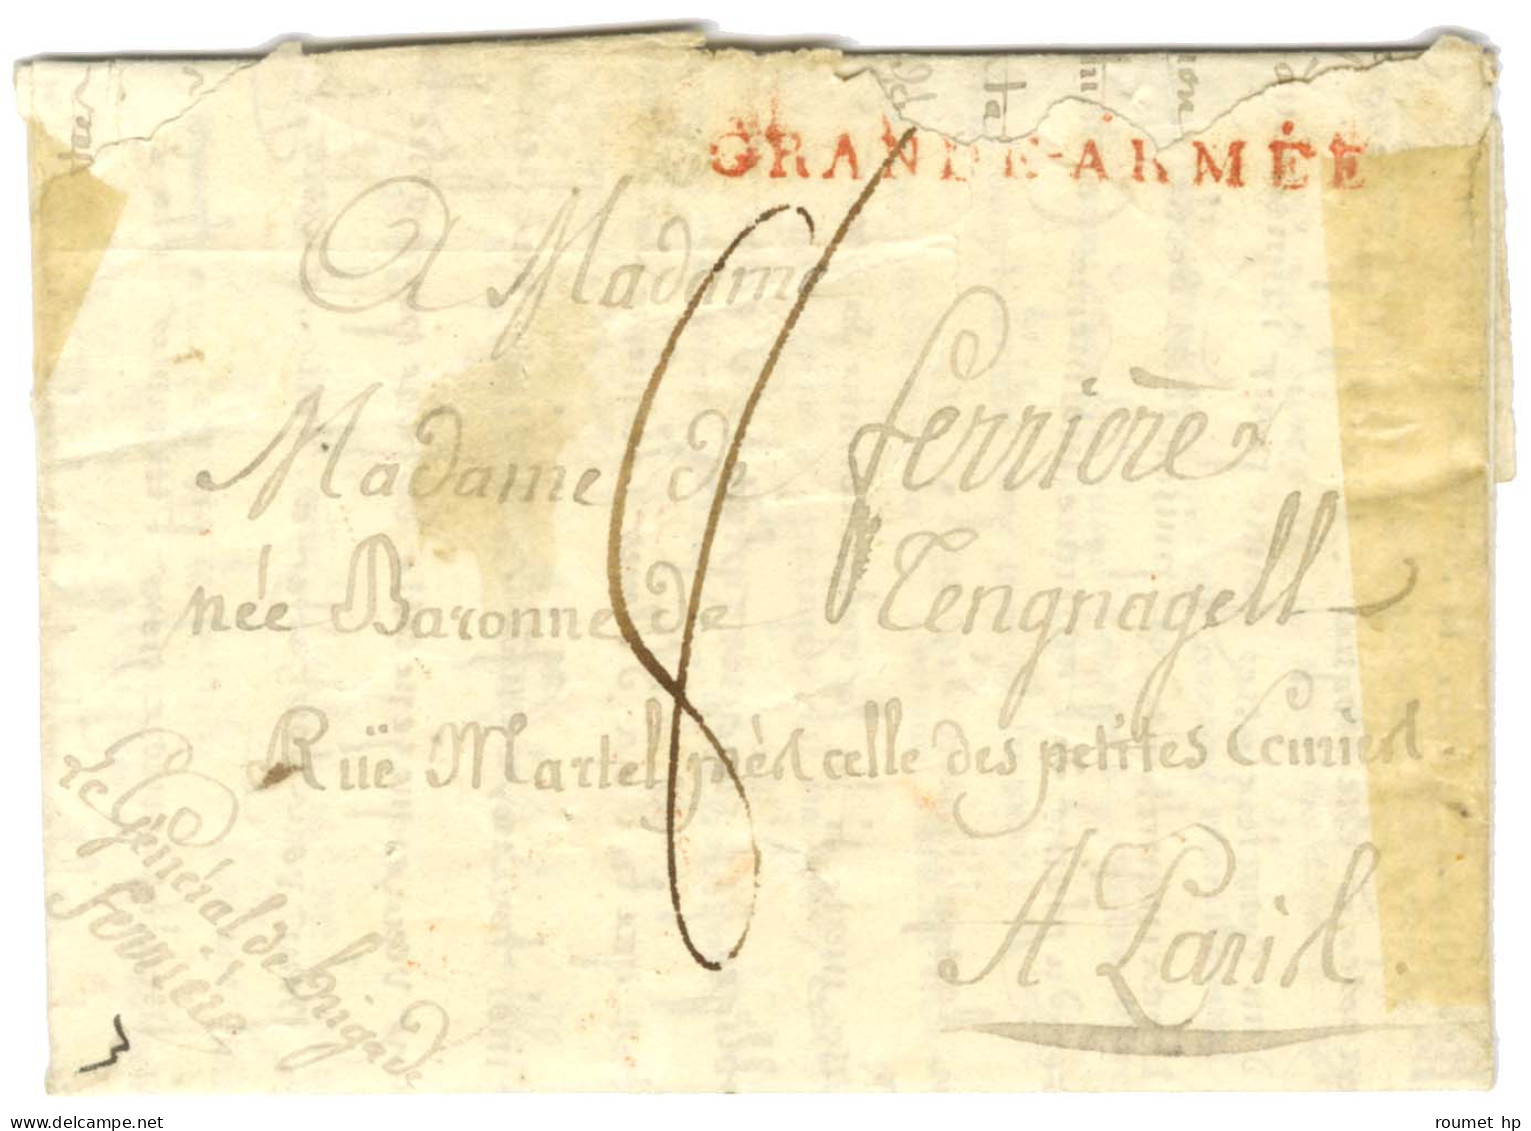 GRANDE-ARMÉE
A Madame
Madame de ferriere
née Baronne de Tengnagell
Ruë Martel près celle des petites Ecuries.
A Paris.
8
Le Général de brigade
ferrière
3
roumet hp